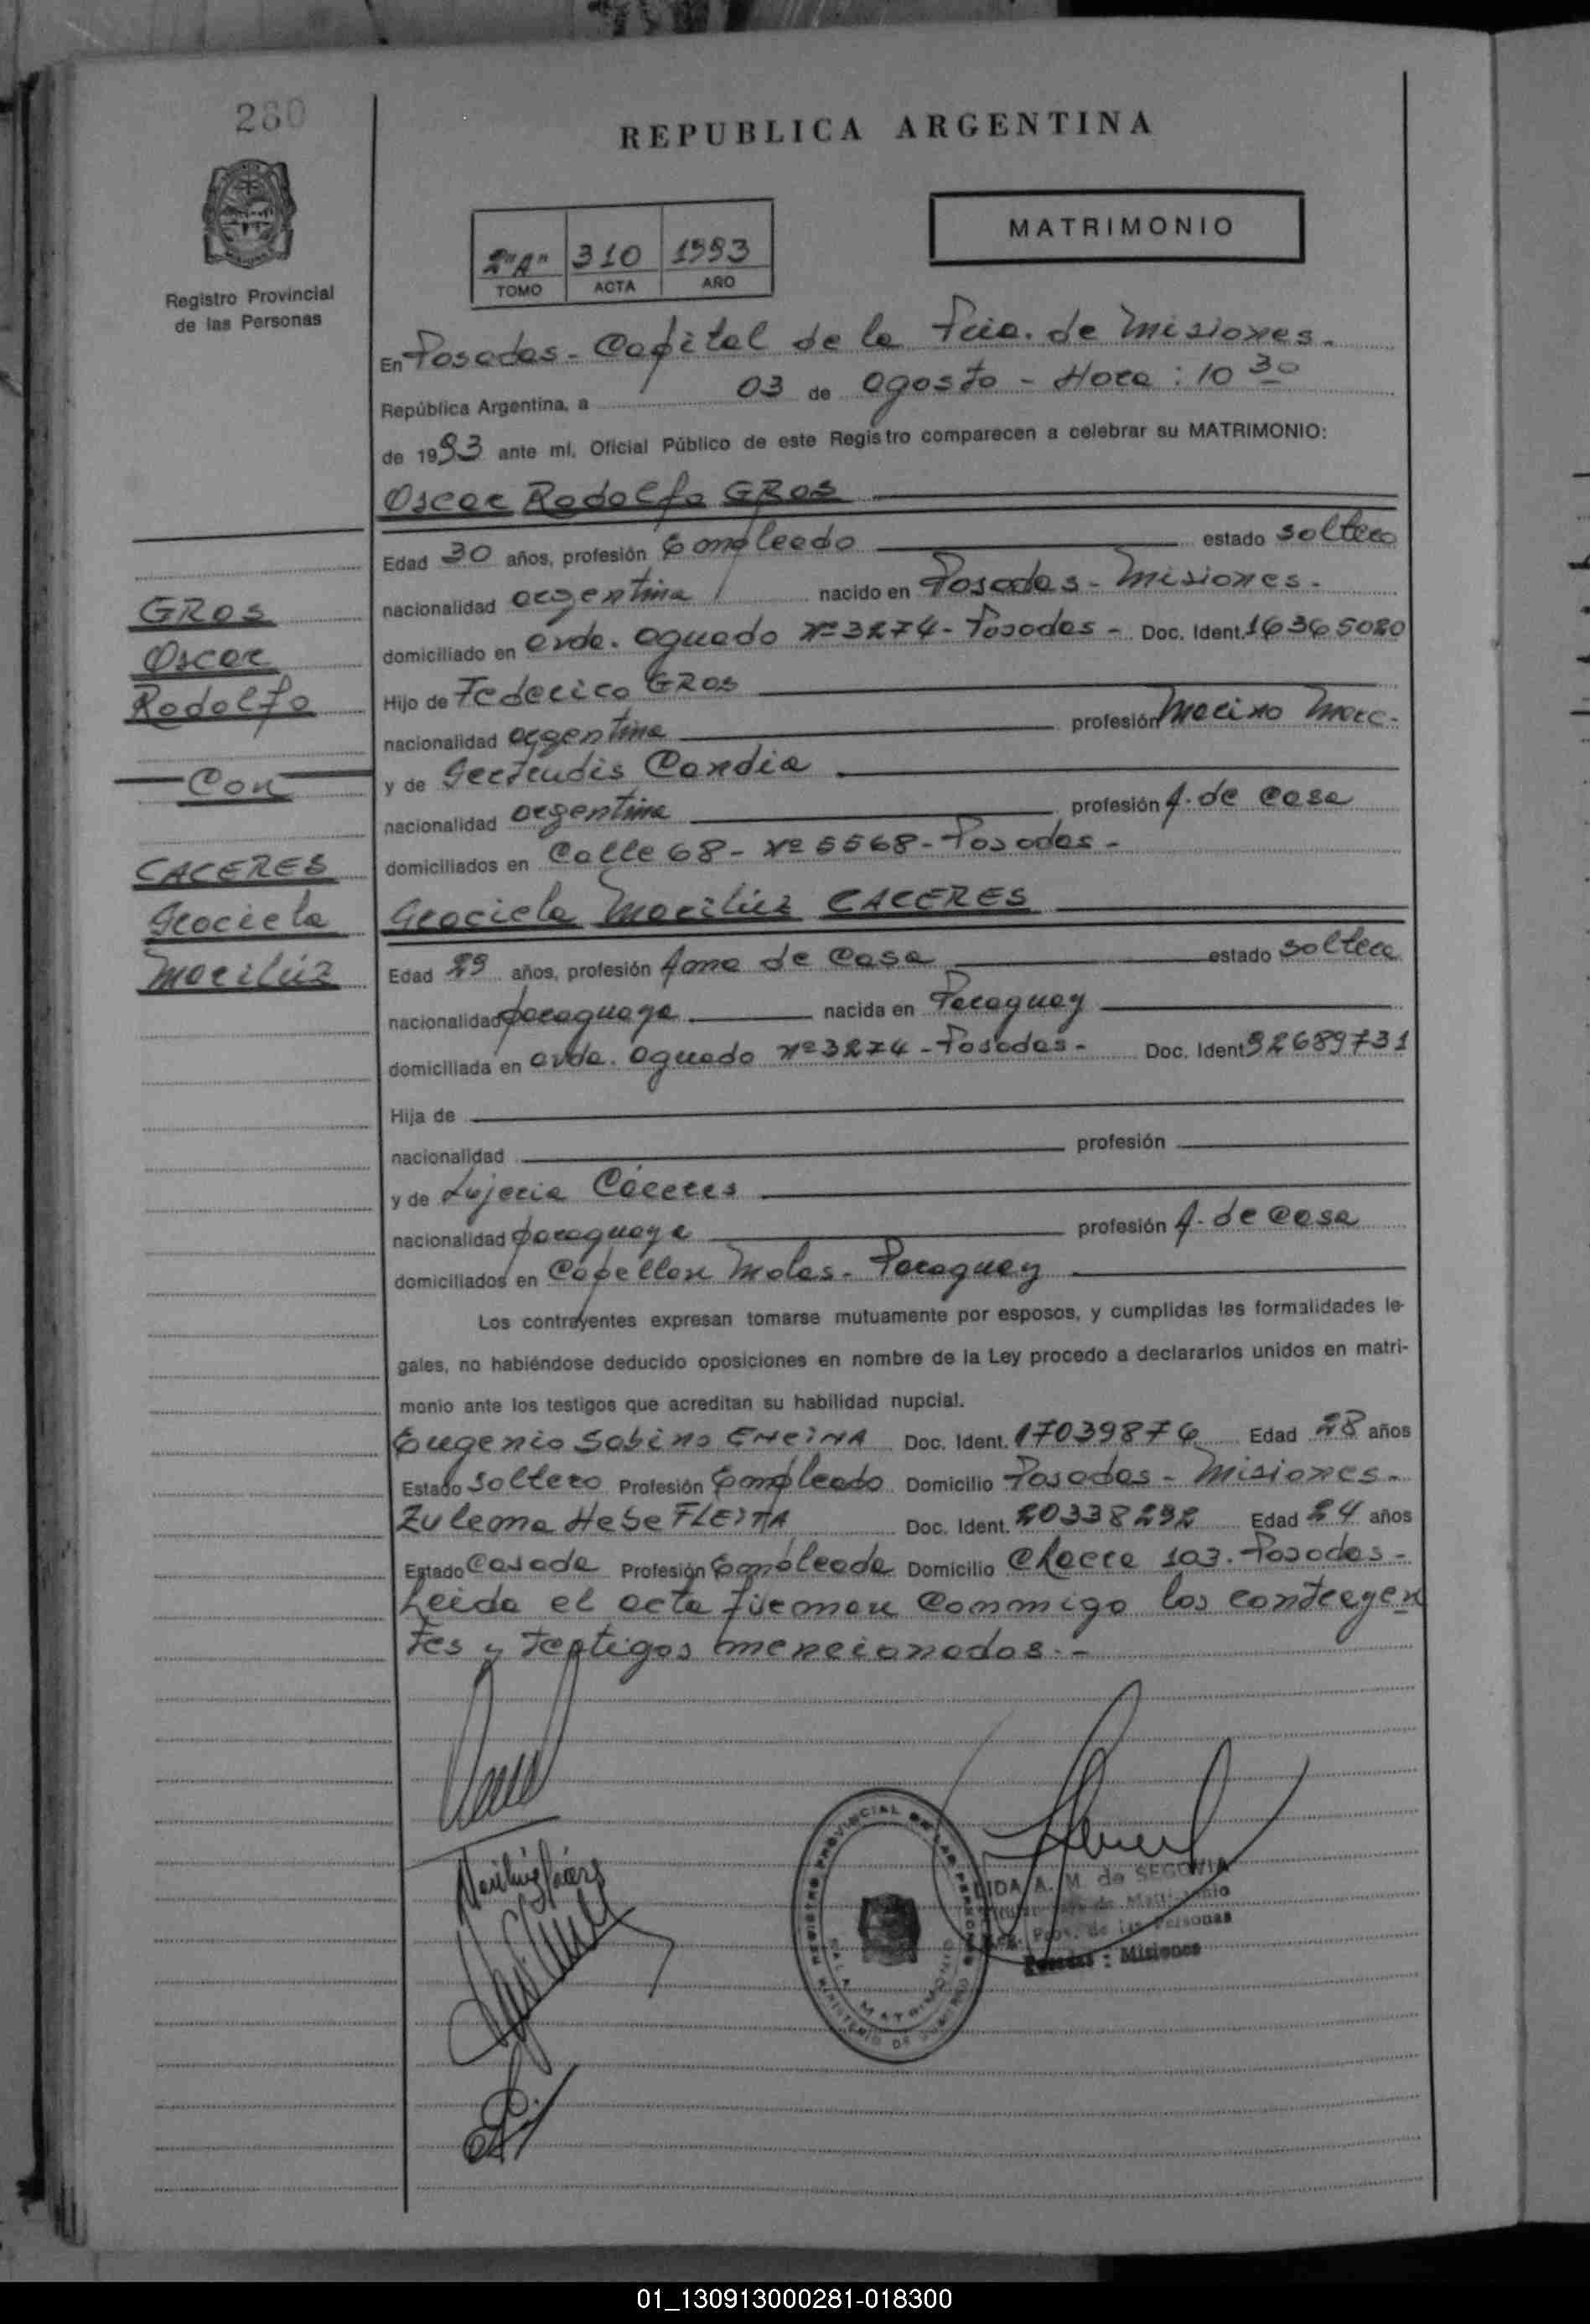 280
REPUBLICA ARGENTINA
MATRIMONIO
2"A" 310 1993
TOMO ACTA AÑO
Registro Provincial
de las Personas
En Posadas - Capital de la Pcia. de Misiones.
República Argentina, a 03 de Agosto - Hora: 10 30
de 1993 ante mí, Oficial Público de este Registro comparecen a celebrar su MATRIMONIO:
Oscar Rodolfo GROS
Edad 30 años, profesión Empleado estado soltero
nacionalidad argentina nacido en Posadas - Misiones.
domiciliado en avda. aguado Nº 3274 - Posadas - Doc. Ident. 16365020
Hijo de Federico GROS
nacionalidad argentina profesión Marino Merc.
y de Gertrudis Candia
nacionalidad argentina profesión A. de Casa
domiciliados en Calle 68 - Nº 5568 - Posadas -
Graciela Mariluz CACERES
Edad 29 años, profesión Ama de Casa estado soltera
nacionalidad paraguaya nacida en Paraguay
domiciliada en avda. aguado Nº 3274 - Posadas - Doc. Ident 92689731
Hija de
nacionalidad profesión
y de Lujeria Cáceres
nacionalidad paraguaya profesión A. de Casa
domiciliados en Capellan Molas - Paraguay
Los contrayentes expresan tomarse mutuamente por esposos, y cumplidas las formalidades le-
gales, no habiéndose deducido oposiciones en nombre de la Ley procedo a declararlos unidos en matri-
monio ante los testigos que acreditan su habilidad nupcial.
Eugenio Sabino ENCINA Doc. Ident. 17039876 Edad 28 años
Estado Soltero Profesión Empleado Domicilio Posadas - Misiones -
Zulema Hebe FLEITA Doc. Ident. 20338292 Edad 24 años
Estado Casada Profesión Empleada Domicilio Chacra 103. Posadas -
Leida el acta firman conmigo los contrayen
tes y testigos mencionados. -
GROS
Oscar
Rodolfo
Con
CACERES
Graciela
Mariluz
REGISTRO PROVINCIAL DE LAS PERSONAS
SALA MATRIMONIO
MINISTERIO DE GOBIERNO
LIDA A. M. de SEGOVIA
de Matrimonio
Reg. Prov. de las Personas
Posadas : Misiones
01_130913000281-018300